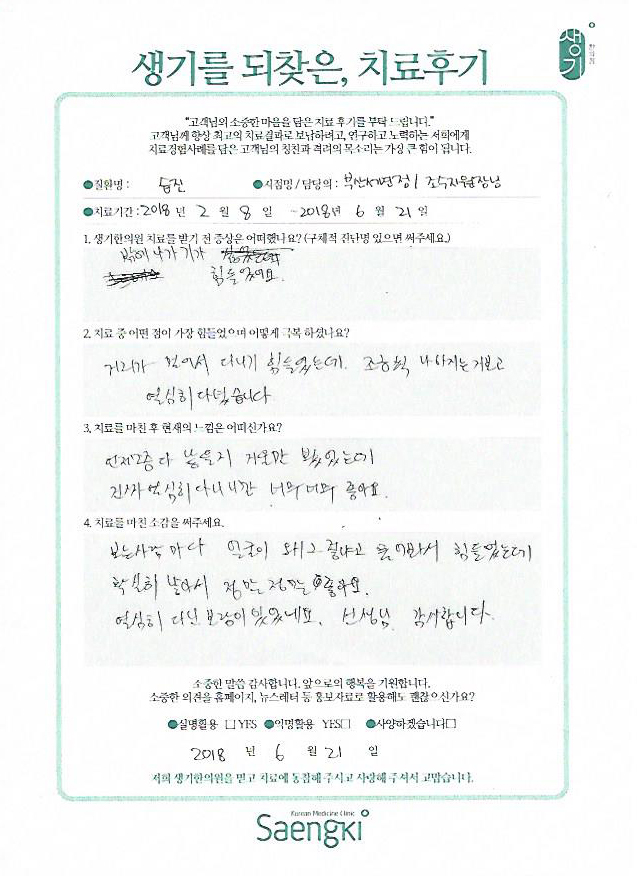 생기
한의원
생기를 되찾은, 치료후기
"고객님의 소중한 마음을 담은 치료 후기를 부탁 드립니다."
고객님께 항상 최고의 치료결과로 보답하려고, 연구하고 노력하는 저희에게
치료경험사례를 담은 고객님의 칭찬과 격려의 목소리는 가장 큰 힘이 됩니다.
●질환명 : 습진 ●지점명 / 담당의 : 부산서면점 / 조수지원장님
●치료기간 : 2018 년 2 월 8 일 ~ 2018년 6 월 21 일
1. 생기한의원 치료를 받기 전 증상은 어떠했나요? (구체적 진단명 있으면 써주세요.)
밖에 나가기가
힘들었어요.
2. 치료 중 어떤 점이 가장 힘들었으며 어떻게 극복 하셨나요?
거리가 멀어서 다니기 힘들었는데. 조금씩 나아지는거보고
열심히 다녔습니다
3. 치료를 마친 후 현재의 느낌은 어떠신가요?
언제쯤 다 낳을지 거울만 봤었는데
진짜 열심히 다니니깐 너무너무 좋아요.
4. 치료를 마친 소감을 써주세요.
보는사람 마다 얼굴이 왜그렇냐고 물어봐서 힘들었는데
확실히 낳아서 정말 정말 좋아요.
열심히 다닌 보람이 있었네요. 선생님 감사합니다.
소중한 말씀 감사합니다. 앞으로의 행복을 기원합니다.
소중한 의견을 홈페이지, 뉴스레터 등 홍보자료로 활용해도 괜찮으신가요?
●실명활용 □YES ●익명활용 YES□ ●사양하겠습니다□
2018 년 6 월 21 일
저희 생기한의원을 믿고 치료에 동참해 주시고 사랑해 주셔서 고맙습니다.
Korean Medicine Clinic
Saengki